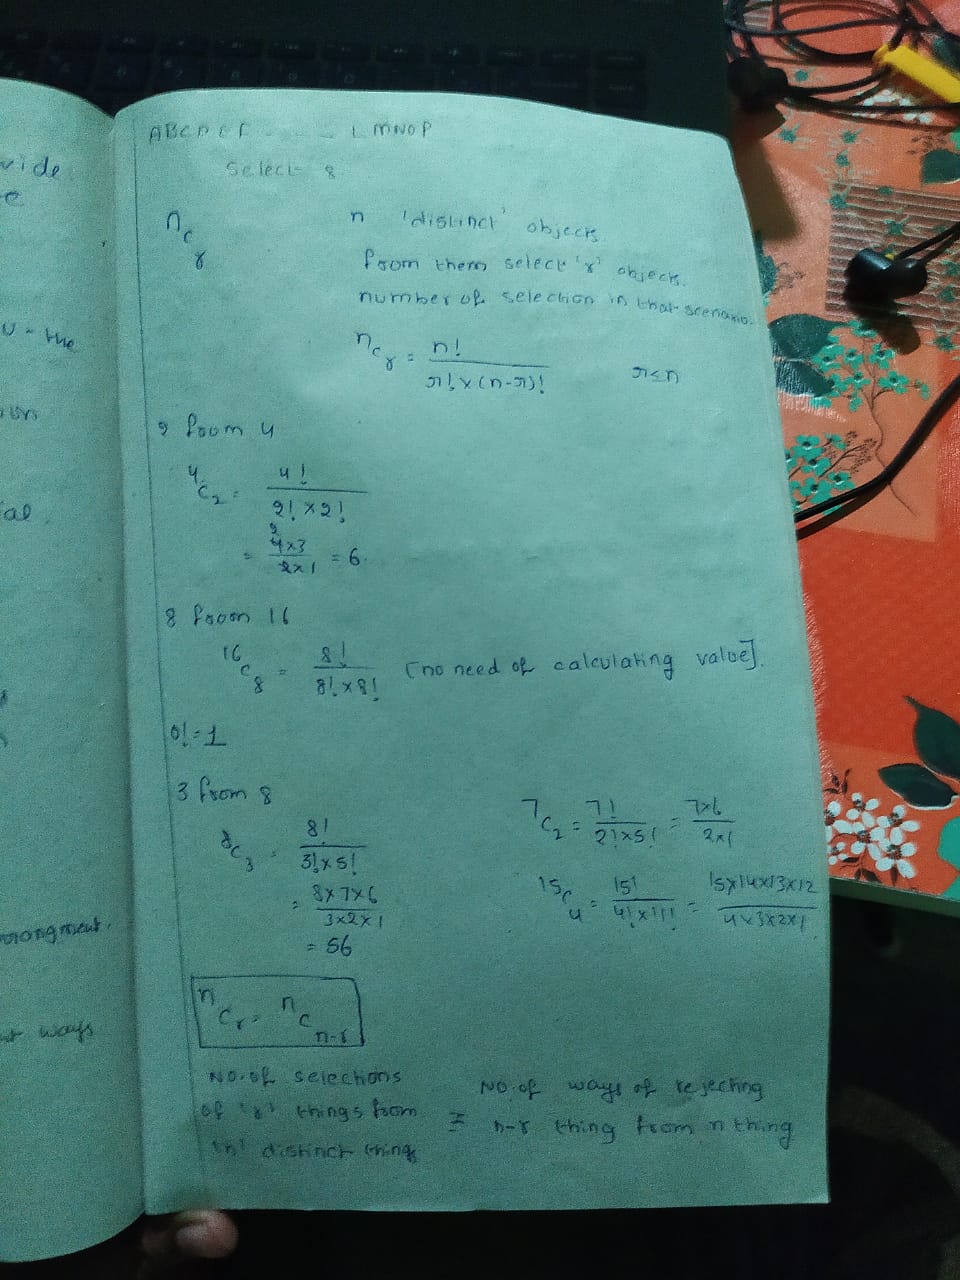 vide
e
the
al.
ways
ABCDEF - - - - L MNOP
Select 8
nCr
n 'distinct' objects.
from them select 'r' objects.
number of selection in that scenario.
nCr = n! / r! x (n-r)!
r≤n
2 from 4
4C2 = 4! / 2! x 2!
= 4x3 / 2x1 = 6.
2
8 from 16
16C8 = 8! / 8! x 8! [no need of calculating value].
0! = 1
3 from 8
8C3 = 8! / 3! x 5!
= 8x7x6 / 3x2x1
= 56
7C2 = 7! / 2! x 5! = 7x6 / 2x1
15C4 = 15! / 4! x 11! = 15x14x13x12 / 4x3x2x1
nCr = nCn-r
No. of selections
of 'r' things from
'n' distinct things
=
No. of ways of rejecting
n-r thing from n thing